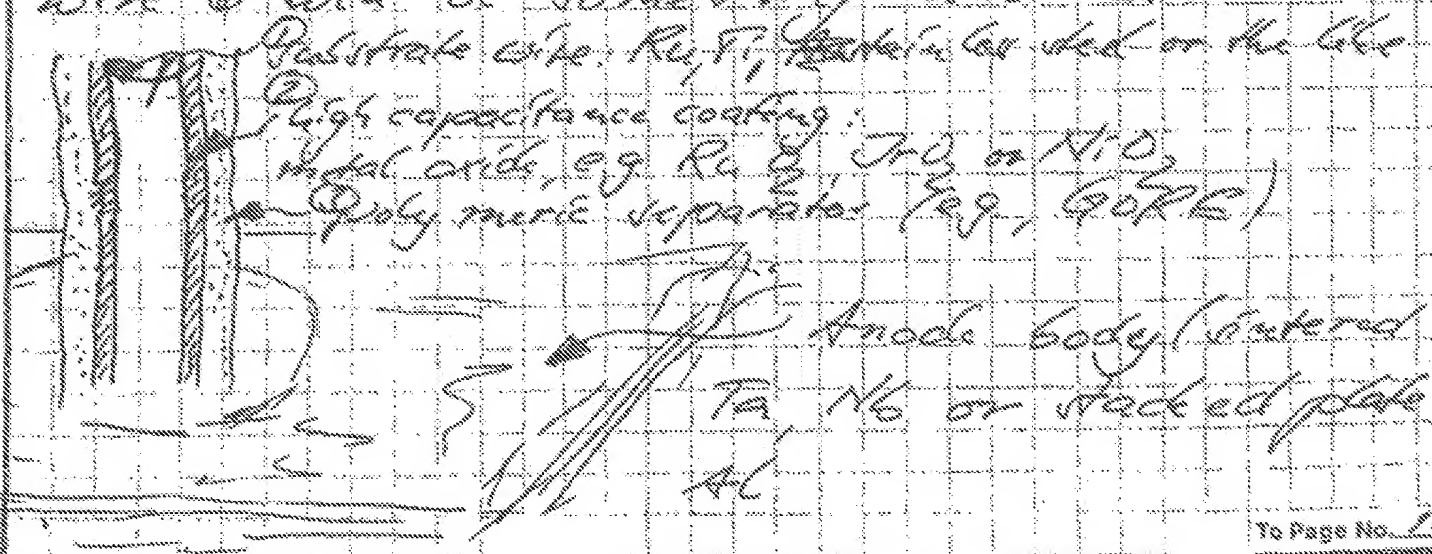 ① Substrate wire. Ru, Ti, used or the like
② High capacitance coating:
metal oxide, eg. Ru O2, IrO2 or NiO,
③ Polymeric separator (eg, GORE)
Anode body (sintered
Ta Nb or stacked plate
Al
To Page No.